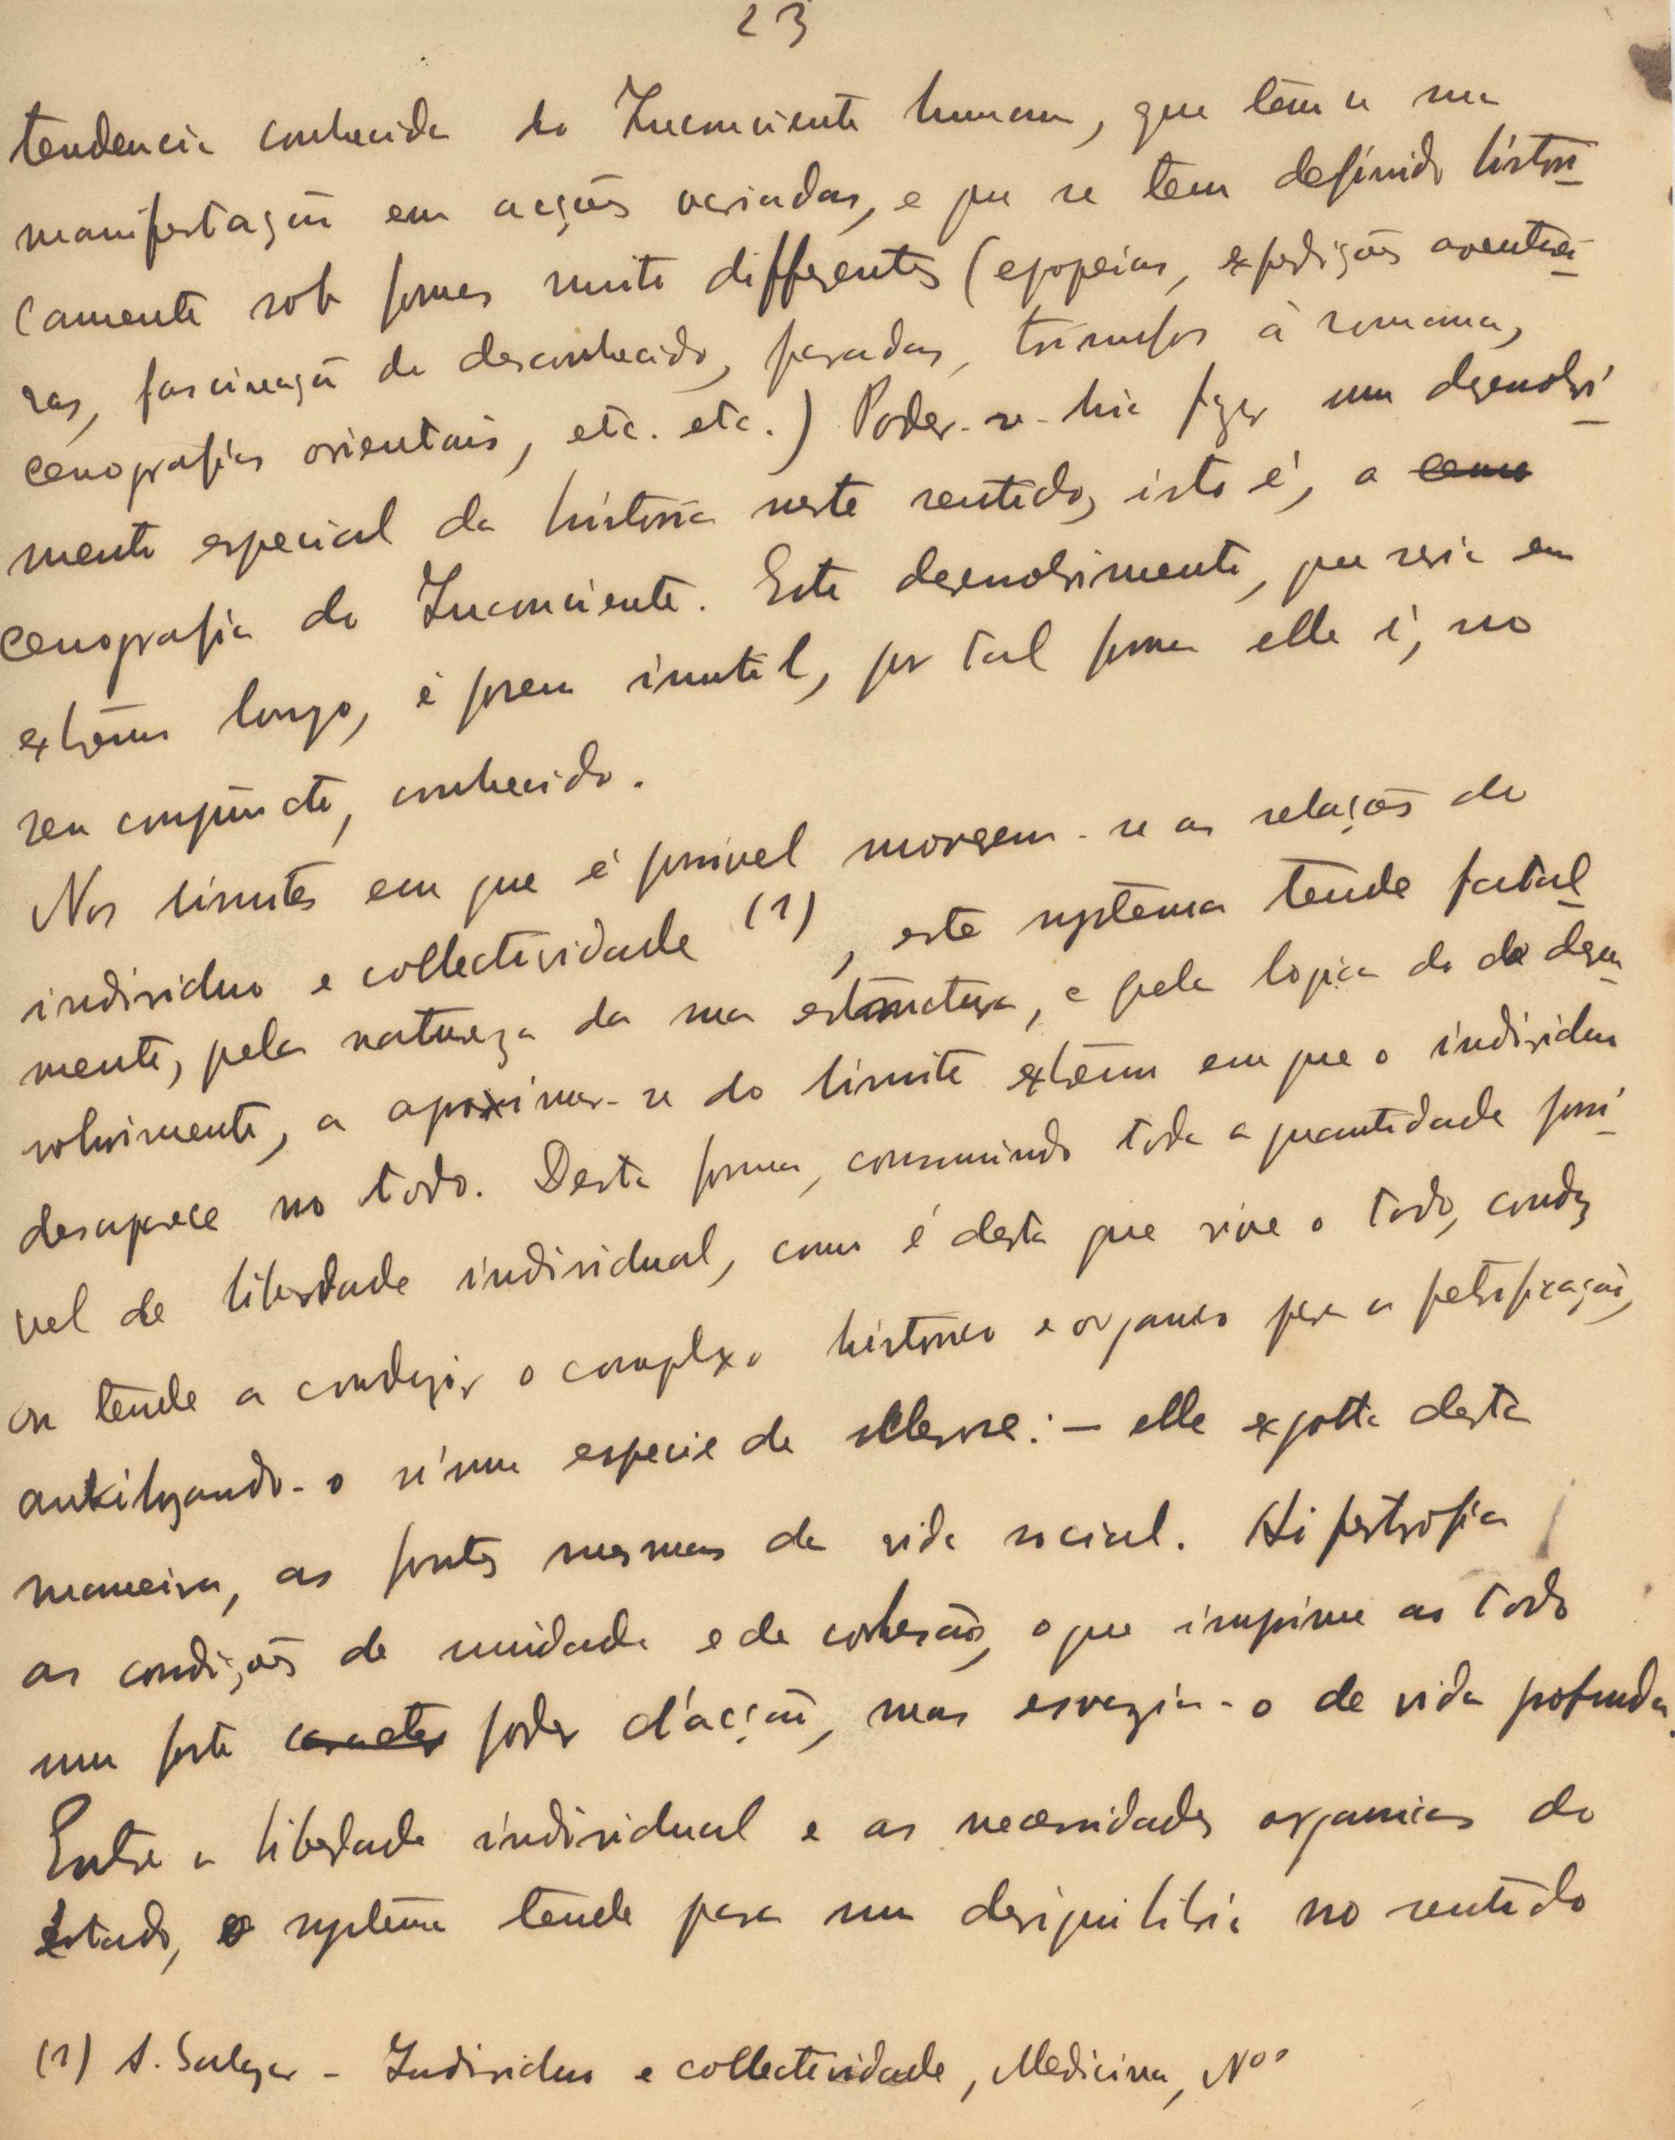 23
tendencia conhecida do Inconsciente humano, que têm a sua
manifestação em acções variadas, e que se tem definido histori-
camente sob formas muito differentes (epopeias, expedições aventurei-
ras, fascinação do desconhecido, paradas, triumfos à romana,
cenografias orientais, etc. etc.) Poder-se-hia fazer um desenvolvi-
mento especial da história neste sentido, isto é, a como
cenografia do Inconsciente. Este desenvolvimento, que seria em
extremo longo, é porem inutil, por tal forma elle é, no
seu conjuncto, conhecido.
Nos limites em que é possivel moverem-se as relações do
individuo e collectividade (1), este systema tende fatal-
mente, pela natureza da sua estructura, e pela logica do de desen-
volvimento, a aproximar-se do limite extremo em que o individuo
desaparece no todo. Desta forma, consumindo toda a quantidade possi-
vel de liberdade individual, como é desta que vive o todo, conduz
ou tende a conduzir o complexo historico e organico para a petrificação,
ankilozando-o n'uma especie de sclerose: – elle exgotta desta
maneira, as fontes mesmas da vida social. Hipertrofia
as condições de unidade e de cohesão, o que imprime ao todo
um forte caracter poder d'acção, mas esvazia-o de vida profunda.
Entre a liberdade individual e as necessidades organicas do
Estado, o systema tende para um desiquilibrio no sentido
(1) A. Salazar – Individuo e collectividade, Medicina, Nos